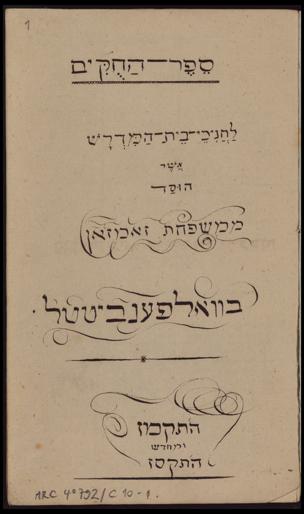 1
סֵפֶר־הַחֻקִּים
לַחֲנִיכֵי־בֵּית־הַמִּדְרָשׁ
אֲשֶׁר
הוּסַד
ממשפחת זאמזאן
בוואלפענביטטל
התקמז
התקסז
ARC 4° 792/C 10-1.